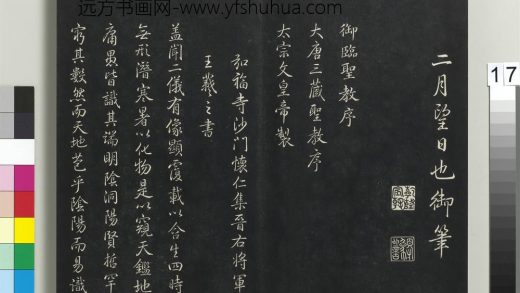 远方书画网-www.yfshuhua.com
二月望日也御筆
御臨聖教序
大唐三藏聖教序
太宗文皇帝製
弘福寺沙門懷仁集晉右將軍
王羲之書
蓋聞二儀有像顯覆載以含生四時
無形潛寒暑以化物是以窺天鑑地
庸愚皆識其端明陰洞陽賢哲罕
窮其數然而天地苞乎陰陽而易識
17